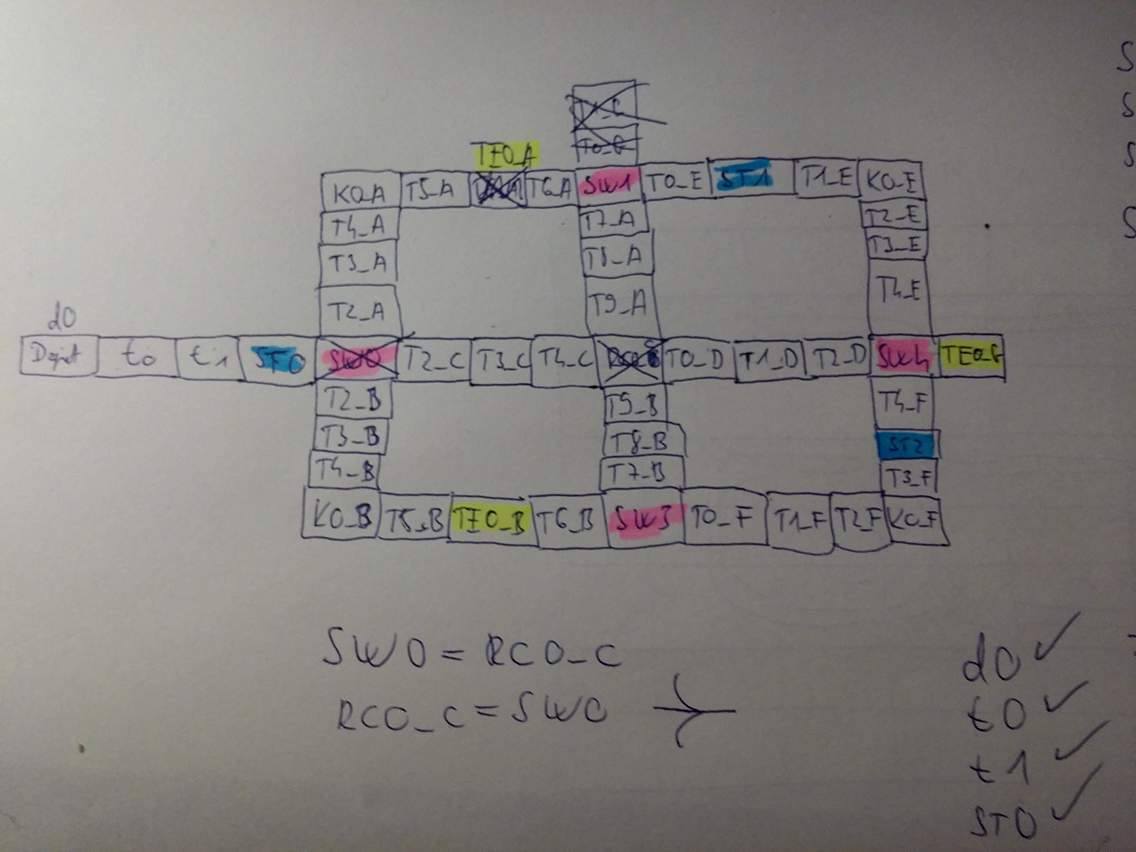 T1_C
T0_C
TE0_A
K0_A T5_A T6_A SW1 T0_E ST1 T1_E K0_E
T4_A T7_A T2_E
T3_A T8_A T3_E
T2_A T9_A T4_E
d0
Depot t0 t1 ST0 SW0 T2_C T3_C T4_C T0_D T1_D T2_D SW4
T2_B T9_B T4_F
T3_B T8_B ST2
T4_B T7_B T3_F
K0_B T5_B TE0_B T6_B SW3 T0_F T1_F T2_F K0_F
SW0 = RC0_C
RC0_C = SW0
d0 ✓
t0 ✓
t1 ✓
ST0 ✓
S
S
S
S